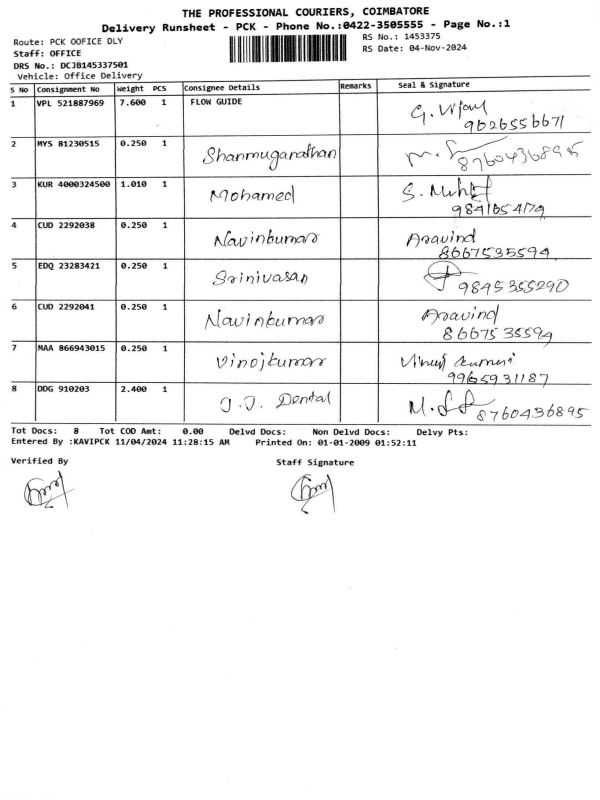 THE PROFESSIONAL COURIERS, COIMBATORE
Delivery Runsheet - PCK - Phone No.:0422-3505555 - Page No.:1
Route: PCK OOFICE DLY
RS No.: 1453375
Staff: OFFICE
RS Date: 04-Nov-2024
DRS No.: DCJB145337501
Vehicle: Office Delivery
S No Consignment No Weight PCS Consignee Details Remarks Seal & Signature
1 VPL 521887969 7.600 1 FLOW GUIDE G. Vijay
9626556671
2 MYS 81230515 0.250 1 Shanmuganathan
8760436895
3 KUR 4000324500 1.010 1 Mohamed
9841654179
4 CUD 2292038 0.250 1 Navinkumar Aravind
8667535594
5 EDQ 23283421 0.250 1 Srinivasan
9845355290
6 CUD 2292041 0.250 1 Navinkumar Aravind
8667535594
7 MAA 866943015 0.250 1 Vinojkumar
9965931187
8 DDG 910203 2.400 1 J.J. Dental
8760436895
Tot Docs: 8 Tot COD Amt: 0.00 Delvd Docs: Non Delvd Docs: Delvy Pts:
Entered By :KAVIPCK 11/04/2024 11:28:15 AM Printed On: 01-01-2009 01:52:11
Verified By Staff Signature